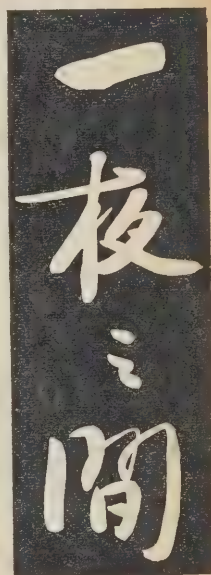 一夜之間